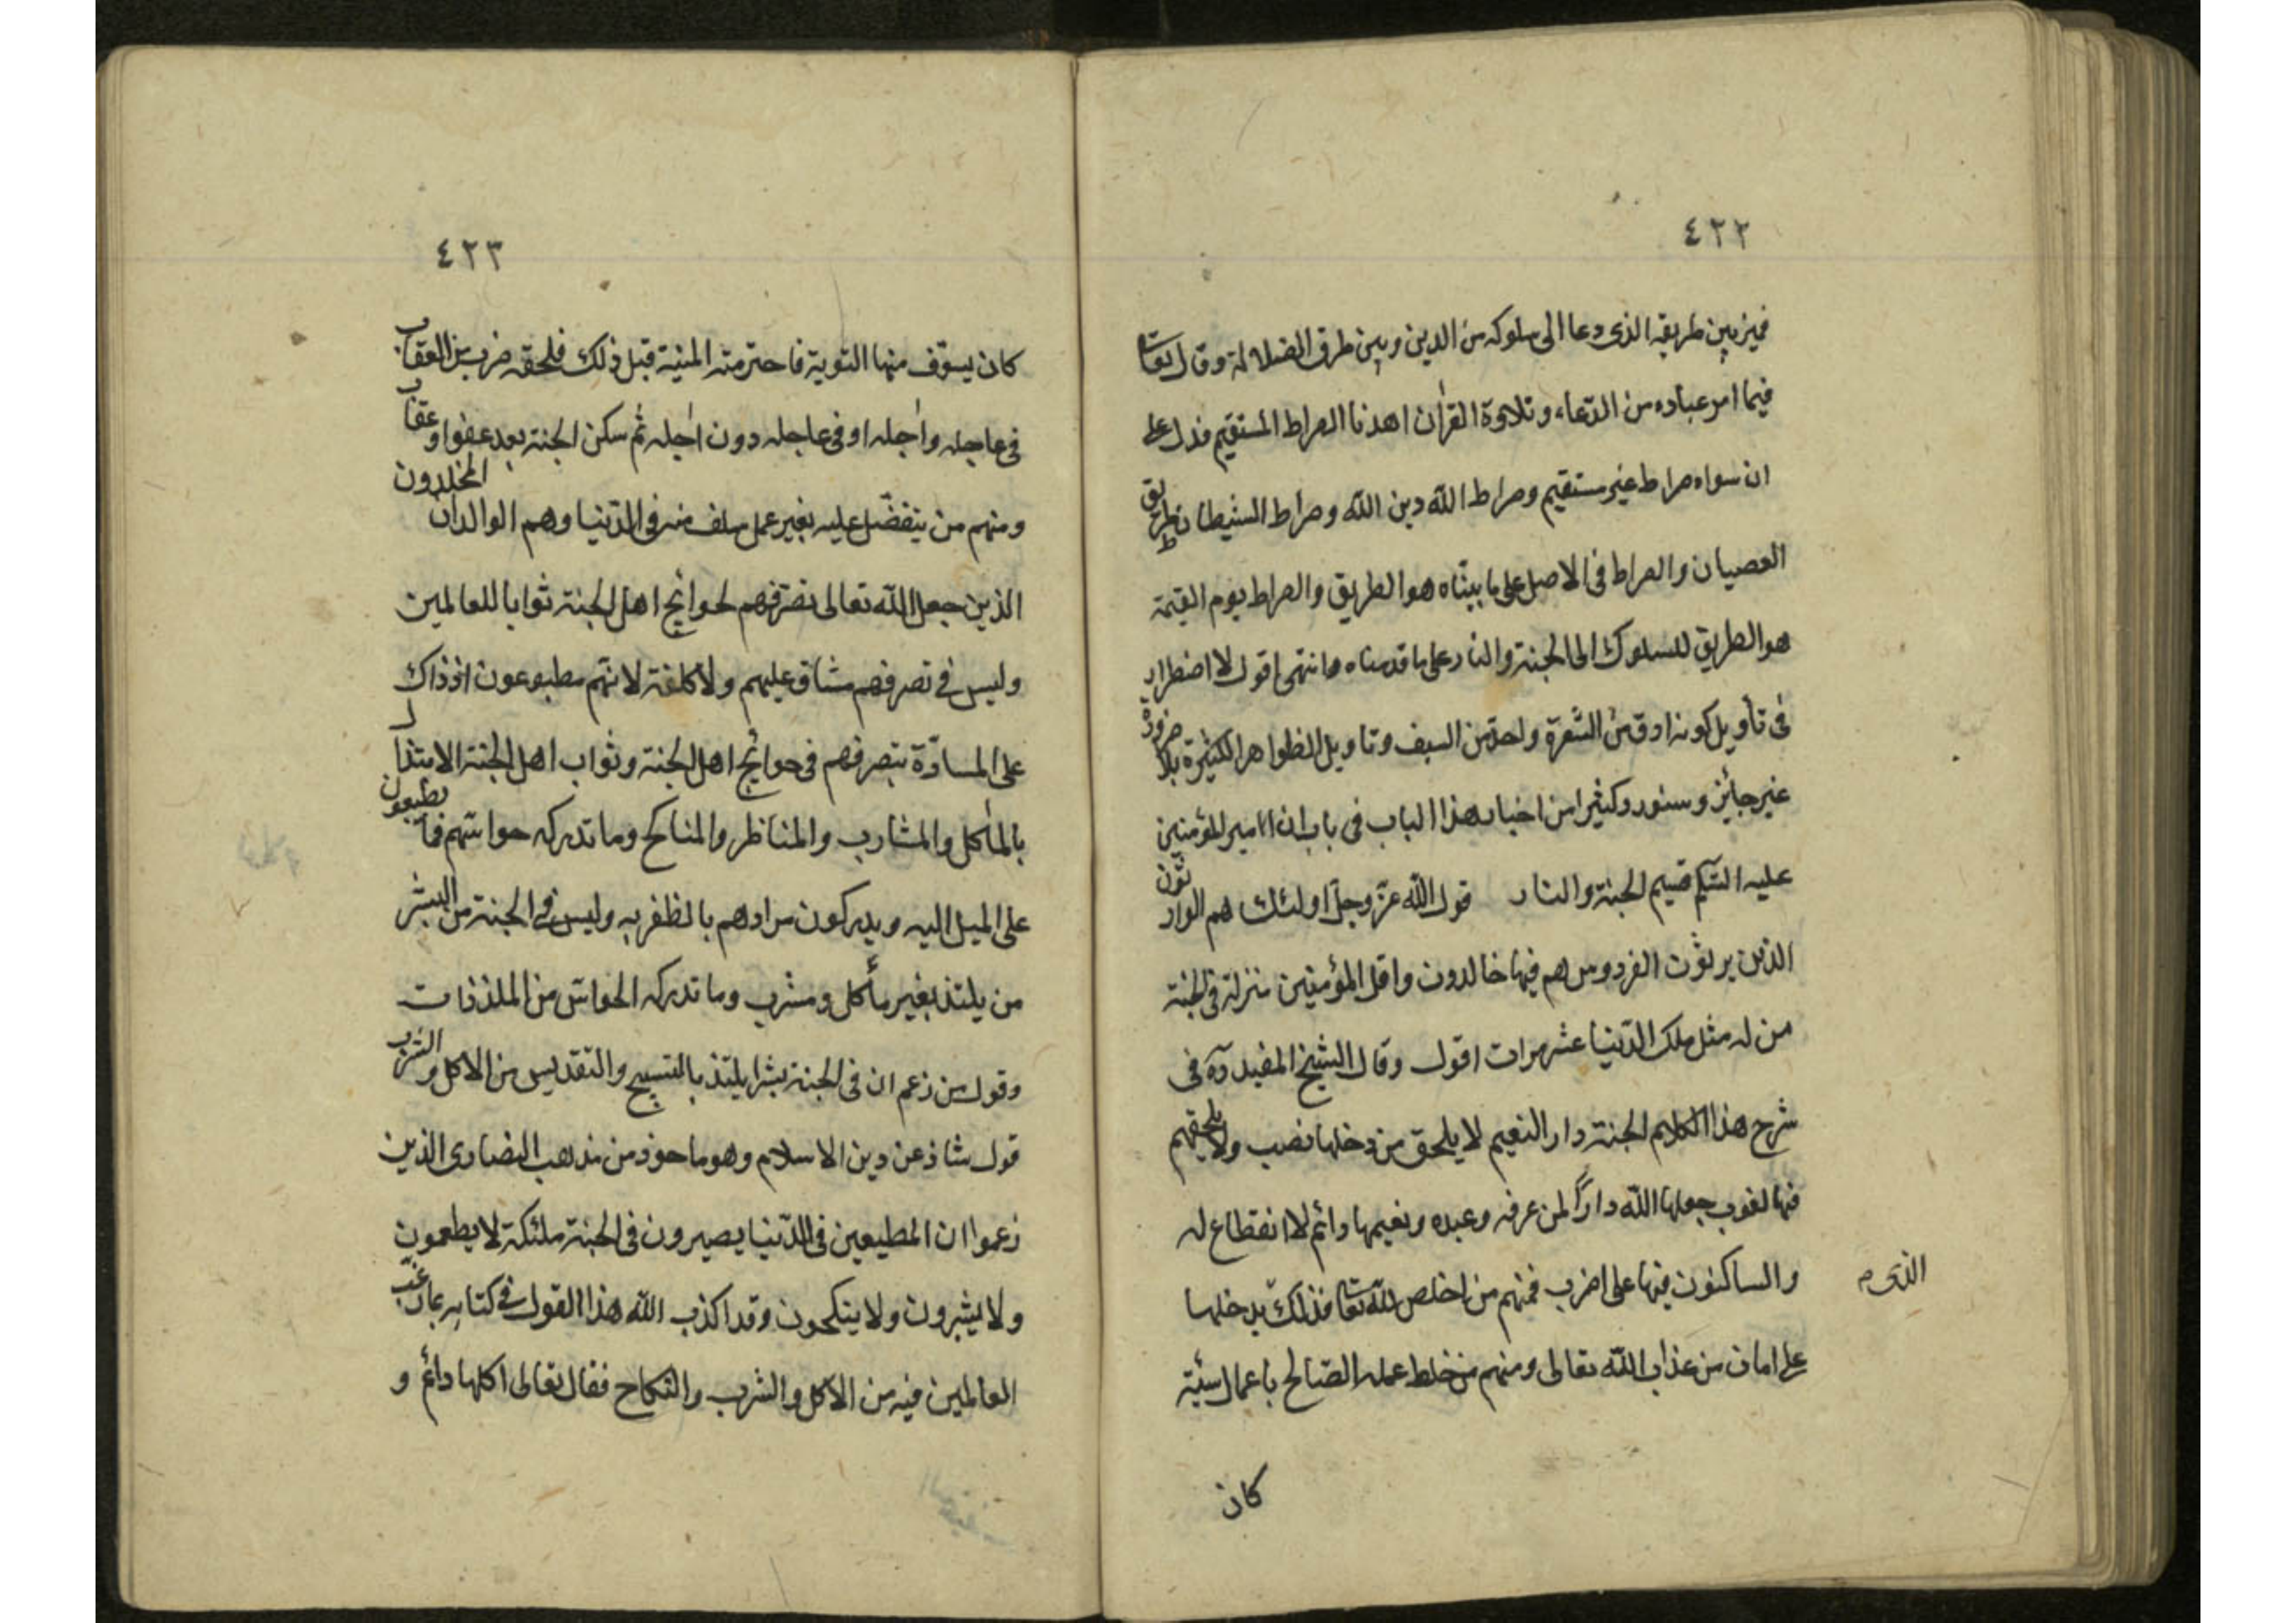 ٤٢٢
فميز بين طريقه الذى دعا الى سلوكه من الدين و بين طرق الضلالة و قال تعا
فيما امر عباده من الدّعاء و تلاوة القراٰن اهدنا الصراط المستقيم فدل على
ان سواه صراط غير مستقيم و صراط اللّٰه دين اللّٰه و صراط الشيطان طريق
العصيان و الصراط فى الاصل على ما بيّناه هو الطريق و الصراط يوم القيمة
هو الطريق للسلوك الى الجنة و النار على ما قدمناه انتهى اقول لا اضطرار
فى تأويل كونه ادق من الشّعرة و احدّ من السيف و تاويل الظواهر الكثيرة بلا ضرورة
غير جائز و سنورد كثيرا من اخبار هذا الباب فى باب ان امير المؤمنين
عليه السّلم قسيم الجنة و النار قول اللّٰه عزّ و جلّ اولئك هم الوارثون
الذين يرثون الفردوس هم فيها خالدون و اقل المؤمنين منزلة فى الجنة
من له مثل ملك الدّنيا عشر مرات اقول و قال الشيخ المفيد ره فى
شرح هذا الكلام الجنة دار النعيم لا يلحق من دخلها نصب و لا يلحقهم
فيها لغوب جعلها اللّٰه داراً لمن عرفه و عبده و نعيمها دائم لا انقطاع له
و الساكنون فيها على اضرب فمنهم من اخلص للّٰه تعا فذلك يدخلها
الذى م
على امان من عذاب اللّٰه تعالى و منهم من خلط عمله الصّالح باعمال سيّئة
كان
٤٢٣
كان يسوّف منها التوبة فاحترمته المنية قبل ذلك فلحقه ضرب من العقاب
فى عاجله و اٰجله او فى عاجله دون اٰجله ثم سكن الجنة بعد عفو او عقاب
و منهم من يتفضّل عليه بغير عمل سلف منه فى الدّنيا و هم الوالدان المخلدون
الذين جعل اللّٰه تعالى تصرّفهم لحوائج اهل الجنة ثوابا للعالمين
و ليس فى تصرفهم مشاق عليهم و لا كلفة لانّهم مطبوعون اذ ذاك
على المسارّة بتصرفهم فى حوائج اهل الجنة و ثواب اهل الجنة الالتذاذ
بالمأكل و المشارب و المناظر و المناكح و ما تدركه حواسّهم مما يطبعون
على الميل اليه و يدركون مرادهم بالظفر به و ليس فى الجنة من البشر
من يلتذ بغير مأكل و مشرب و ما تدركه الحواسّ من الملذذات
و قول من زعم ان فى الجنة بشرا يلتذ بالتسبيح و التقديس من الاكل و الشرب
قول شاذ عن دين الاسلام و هو ماخوذ من مذهب النصارى الذين
زعموا ان المطيعين فى الدّنيا يصيرون فى الجنة ملئكة لا يطعمون
و لا يشربون و لا ينكحون و قد اكذب اللّٰه هذا القول فى كتابه بما رغّب
العالمين فيه من الاكل و الشرب و النّكاح فقال تعالى اكلها دائم و